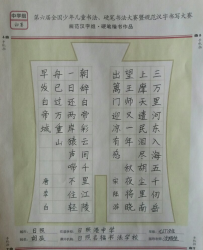 中学组
第六届全国少年儿童书法、硬笔书法大赛暨规范汉字书写大赛
规范汉字组·硬笔楷书作品
三万里河东入海五千仞岳
上摩天遗民泪尽胡尘里南
望王师又一年 秋夜将晓
出篱门迎凉有感
朝辞白帝彩云间千里江陵
一日还两岸猿声啼不住轻
舟已过万重山
早发白帝城
唐 李白
日照